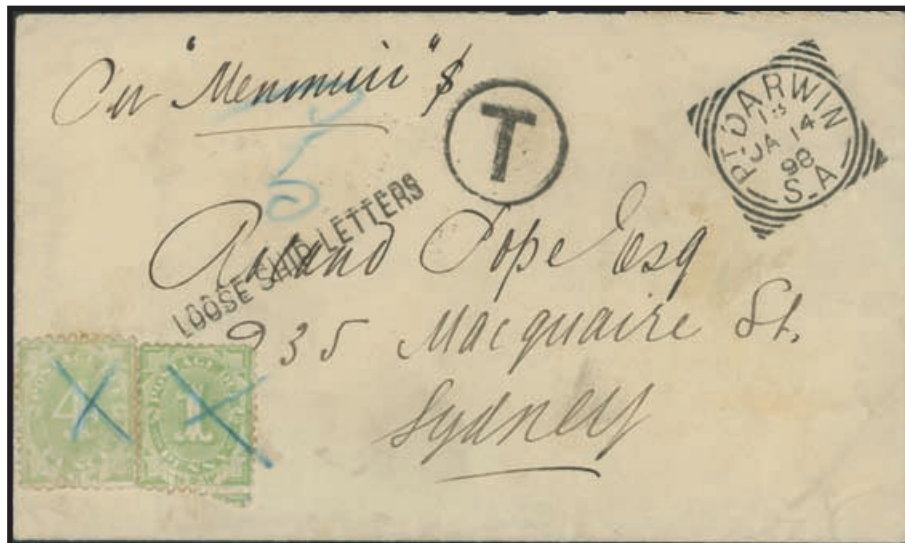 Per "Menmuir" $
T
PT. DARWIN
1 15
JA 14
98
S.A
5
LOOSE SHIP LETTERS
Roland Pope Esq
235 Macquaire St.
Sydney
4
1